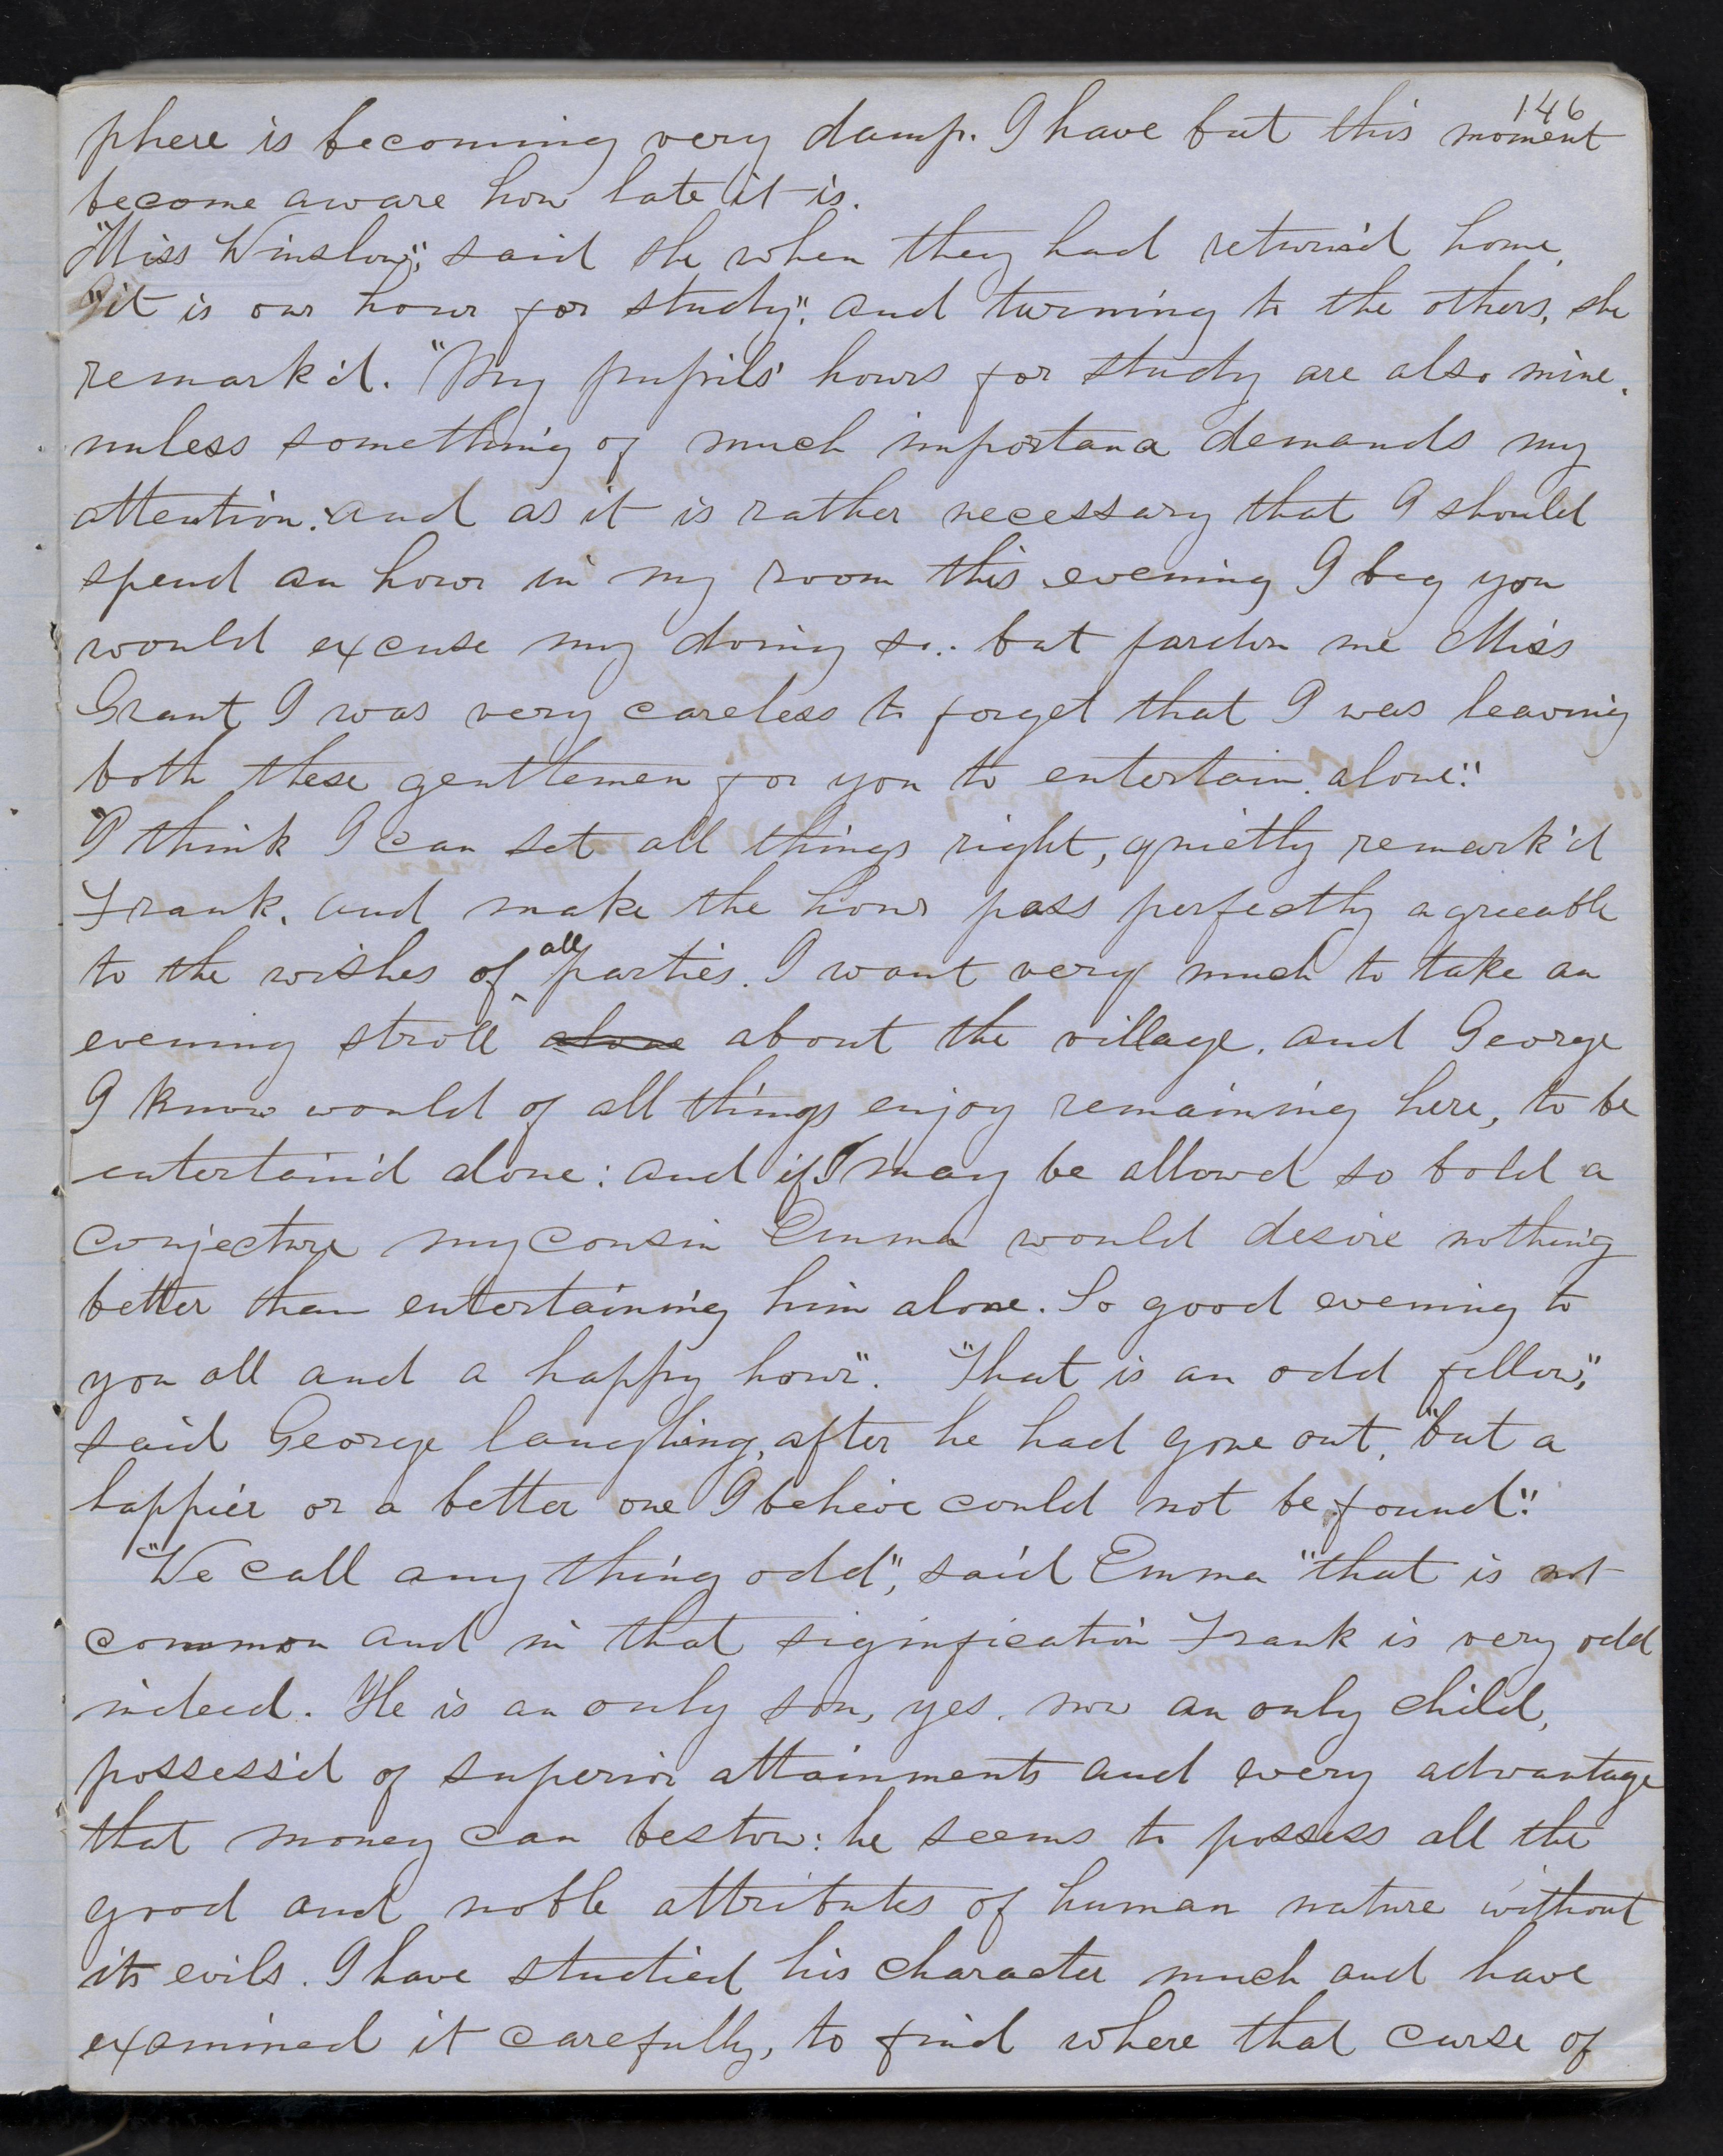 146
phere is becoming very damp. I have but this moment
become aware how late it is.
"Miss Winslow", said she when they had return'd home,
"it is our hour for study", and turning to the others, she
remark'd. "My pupils' hours for study are also mine,
unless something of much importance demands my
attention: and as it is rather necessary that I should
spend an hour in my room this evening I beg you
would excuse my doing so.. but pardon me Miss
Grant I was very careless to forget that I was leaving
both these gentlemen for you to entertain alone".
"I think I can set all things right, quietly remark'd
Frank, and make the hour pass perfectly agreeable
to the wishes of all parties. I want very much to take an
evening stroll alone about the village. and George
I know would of all things enjoy remaining here, to be
entertain'd alone: and if I may be allowd so bold a
conjecture my cousin Emma would desire nothing
better than entertaining him alone. So good evening to
you all and a happy hour". "That is an odd fellow",
said George laughing, after he had gone out, "but a
happier or a better one I believe could not be found".
"We call any thing odd", said Emma "that is not
common and in that signification Frank is very odd
indeed. He is an only son, yes, now an only child,
possess'd of superior attainments and every advantage
that money can bestow: he seems to possess all the
good and noble attributes of human nature without
its evils. I have studied his character much and have
examined it carefully, to find where that curse of